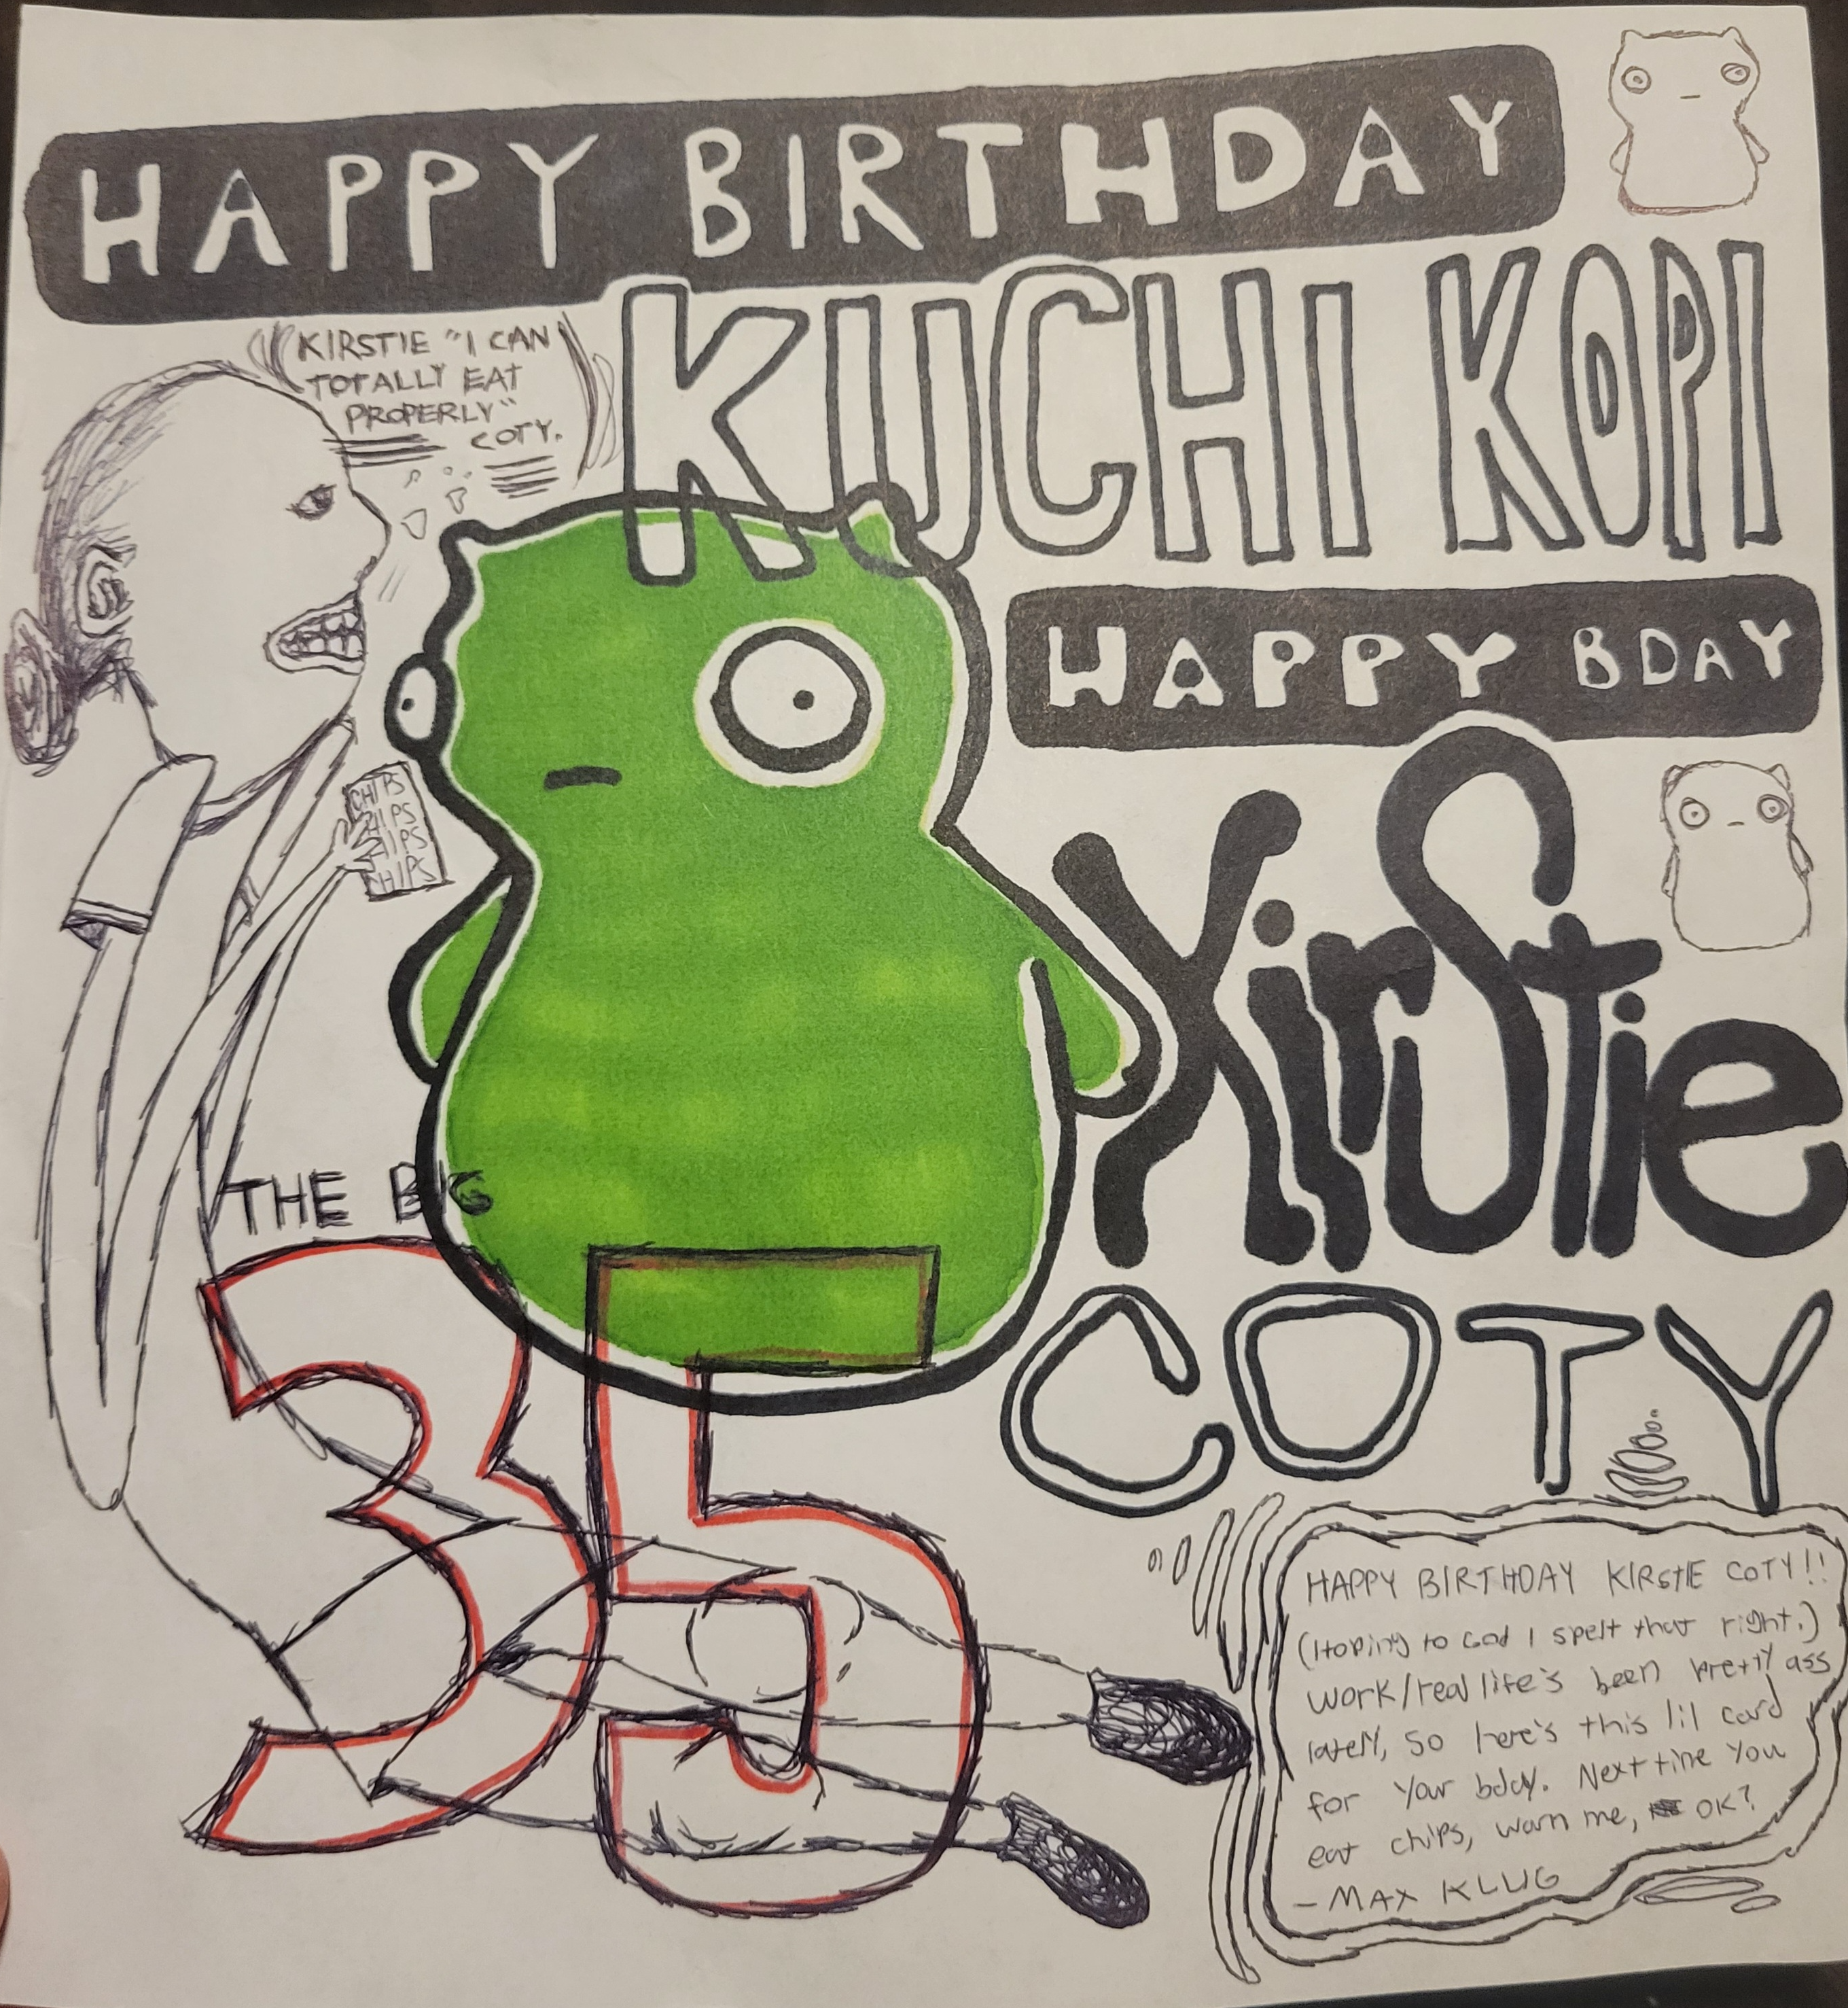 HAPPY BIRTHDAY
KUCHI KOPI
KIRSTIE "I CAN
TOTALLY EAT
PROPERLY"
COTY.
HAPPY BDAY
KirStie
COTY
CHIPS
CHIPS
CHIPS
CHIPS
THE BIG
35
HAPPY BIRTHDAY KIRSTIE COTY!!
(Hoping to God I spelt that right.)
work/real life's been pretty ass
lately, so here's this lil card
for your bday. Next time you
eat chips, warn me, OK?
- MAX KLUG